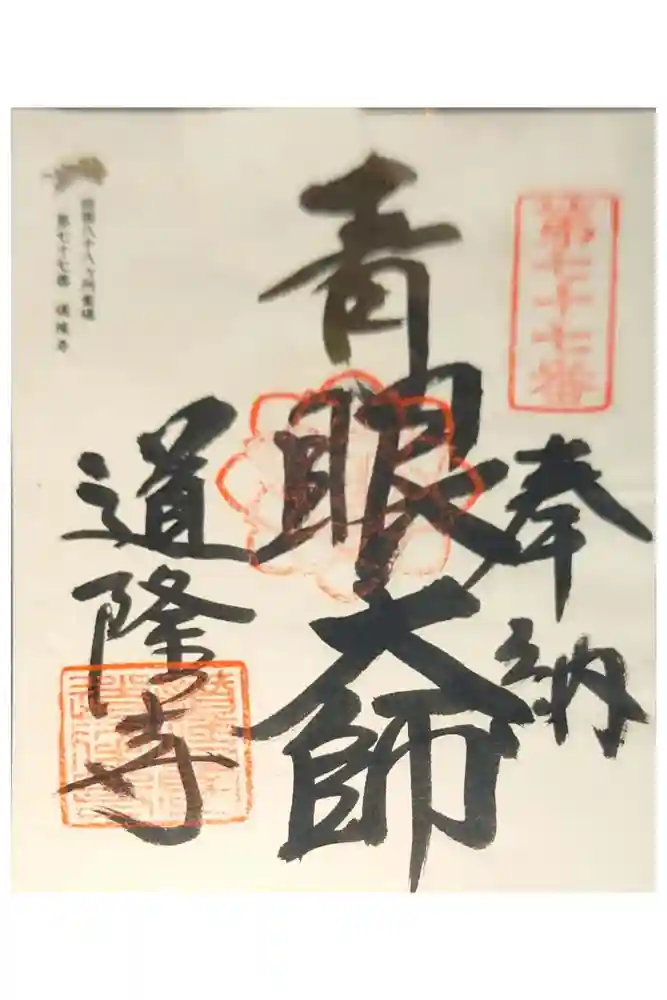 第七十七番
奉納
青眼大師
道隆寺
四国八十八ヶ所霊場
第七十七番 道隆寺